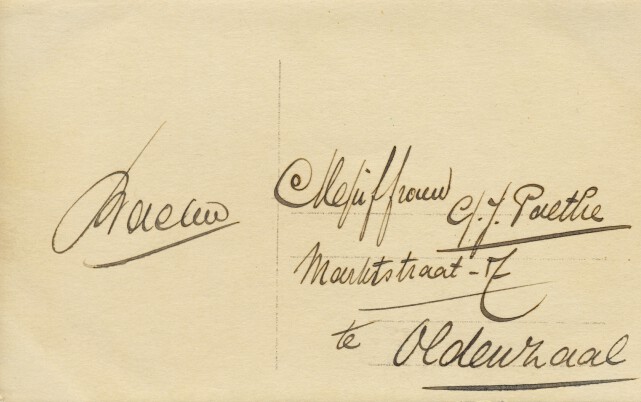 Mejuffrouw
C. J. Paethe
Marktstraat - 7
te Oldenzaal